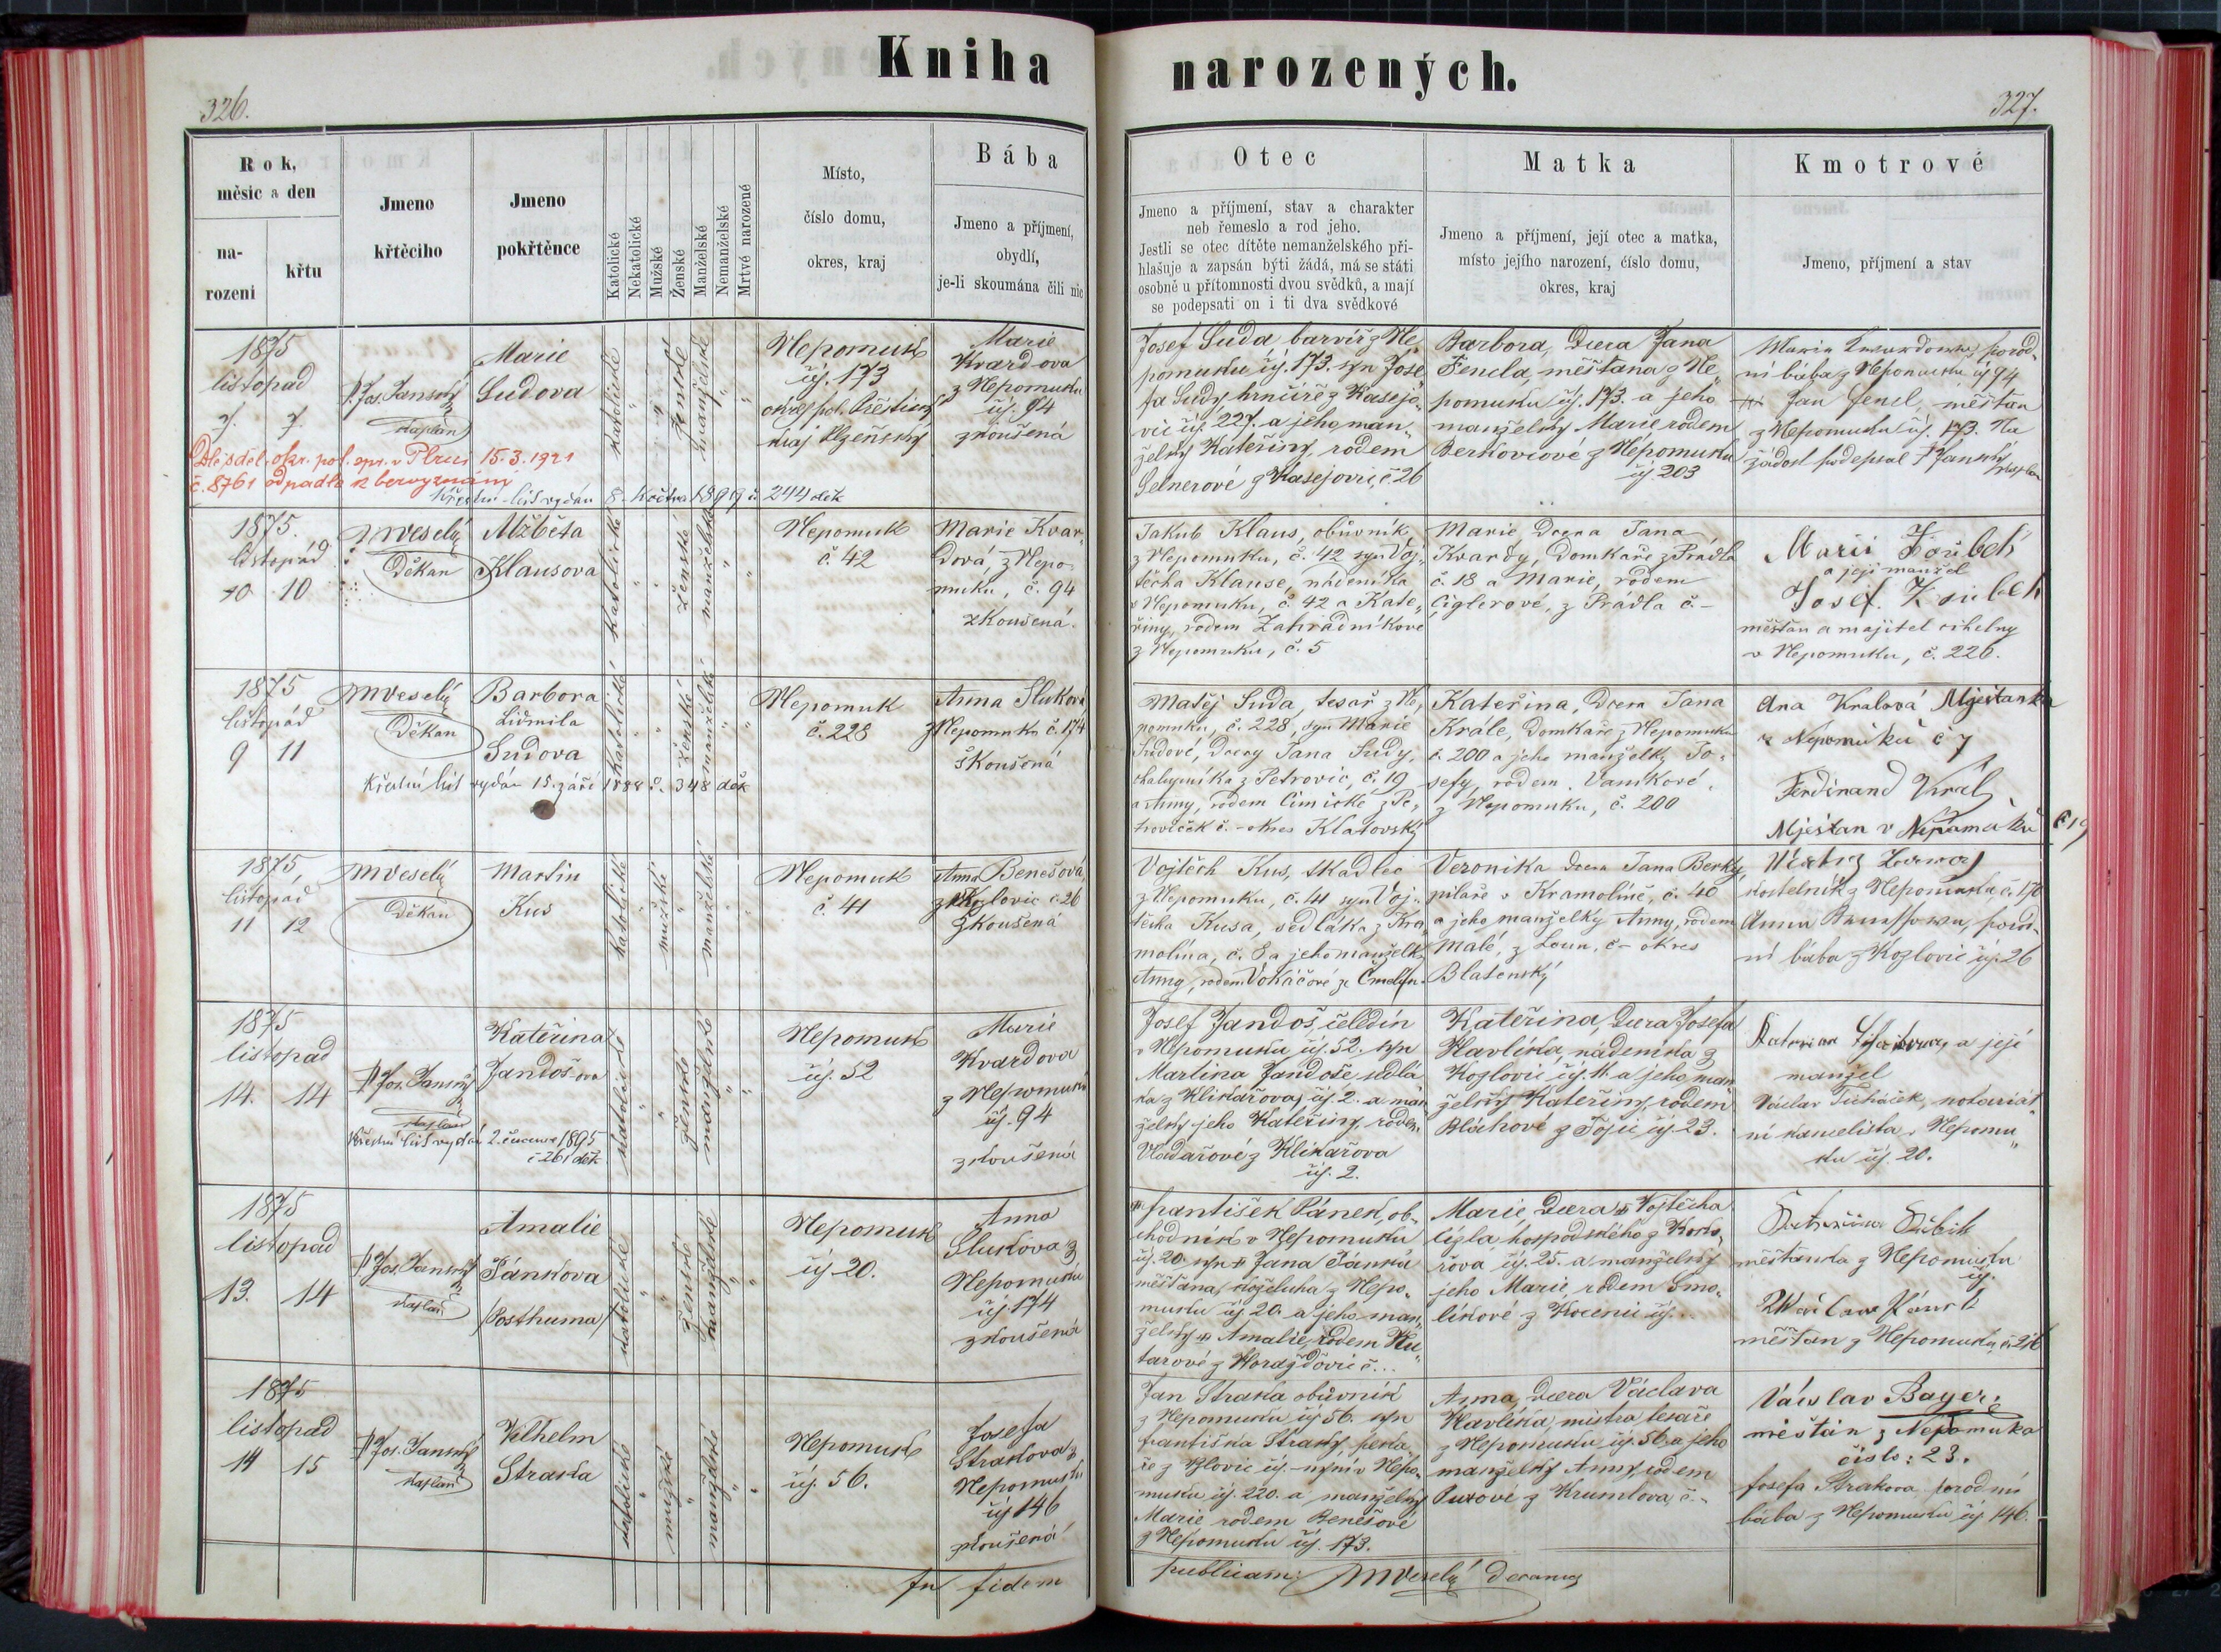 Kniha
narozených.
326.
327.
Rok,
měsíc a den
na-
rození
křtu
Jmeno
křtěcího
Jmeno
pokřtěnce
Katolické
Nekatolické
Mužské
Ženské
Manželské
Nemanželské
Mrtvé narozené
Místo,
číslo domu,
okres, kraj
Bába
Jmeno a příjmení,
obydlí,
je-li skoumána čili nic
Otec
Jmeno a příjmení, stav a charakter
neb řemeslo a rod jeho.
Jestli se otec dítěte nemanželského při-
hlašuje a zapsán býti žádá, má se státi
osobně u přítomnosti dvou svědků, a mají
se podepsati on i ti dva svědkové
Matka
Jmeno a příjmení, její otec a matka,
místo jejího narození, číslo domu,
okres, kraj
Kmotrové
Jmeno, příjmení a stav
1875
listopad
7. 7.
P. Jos. Janský
kaplan
Marie
Sudova
katolické
ženské
manželské
Nepomuk
čj. 173
okres pol. Přeštický
kraj Plzeňský
Marie
Kvardova
z Nepomuku
čj. 94
zkoušená
Dle sděl. okr. pol. spr. v Plzni 15.3.1921
č. 8761 odpadla k bezvyznání
Křestní list vydán 8. května 1899 č. 244 děk
Josef Suda barvíř z Ne
pomuku čj. 173. syn Jose
fa Sudy hrnčíře z Kasejo
vic čj. 227. a jeho man
želky Kateřiny, rodem
Selnerové z Kasejovic, č. 26
Barbora, dcera Jana
Fencla, měšťana z Ne
pomuku čj. 173. a jeho
manželky Marie rodem
Berkovcové z Nepomuku
čj. 203
Maria Kwardowa, porod-
ní bába z Nepomuku čj 94
Jan fencl, měšťan
z Nepomuku čj. 173. Na
žádost podepsal P Janský
kaplan
1875.
listopád
10 10
MVeselý
Děkan
Alžběta
Klausova
katolické
ženské
manželské
Nepomuk
č. 42
Marie Kvar-
dová, z Nepo-
muku, č. 94
zkoušená.
Jakub Klaus, obůvník
z Nepomuku, č. 42 syn Voj-
těcha Klause, nádeníka
v Nepomuku, č. 42 a Kate-
řiny, rodem Zahradníkove
z Nepomuku, č. 5
Marie Dcera Jana
Kvardy, Domkaře z Prádla
č. 18 a Marie, rodem
Ciglerové, z Prádla č. -
Marii Zoubek
a její manžel
Josef. Zoubek
měšťan a majitel cihelny
v Nepomuku, č. 226.
1875
listopád
9 11
MVeselý
Děkan
Barbora
Lidmila
Sudova
katolické
ženské
manželské
Nepomuk
č. 228
Anna Sluková
z Nepomuku č. 174
zkoušená
Křestní list vydán 15. září 1888 č. 348 děk
Matěj Suda, tesař z Ne,
pomuku, č. 228, syn Marie
Sudové, Dcery Jana Sudy,
chalupníka z Petrovic, č. 19
a Anny, rodem Cimické z Pe,
troviček č. - okres Klatovský
Kateřina, Dcera Jana
Krále, Domkaře z Nepomuku
č. 200 a jeho manželky Jo-
sefy, rodem Vaníkové
z Nepomuku, č. 200
Ana Kralová Mještanka
z Nepomuku č 7
Ferdinand Král
Mještan v Nepomuku č 19
1875,
listopád
11 12
MVeselý
Děkan
Martin
Kus
katolické
mužské
manželské
Nepomuk
č. 41
Anna Benešová,
z Kozlovic č. 26
zkoušená
Vojtěch Kus, tkadlec
z Nepomuku, č. 41 syn Voj-
těcha Kusa, sedláka z Kra
molína, č. 8 a jeho manželky
Anny, rodem Vokáčové ze Čmelín
Veronika dcera Jana Berky,
pilaře v Kramolíně, č. 40
a jeho manželky Anny, rodem
Malé, z Loun, č - okres
Blatenský
kostelník z Nepomuku, č. 170
Anna
ní bába z Kozlovic čj. 26
1875
listopad
14. 14
P Jos. Janský
kaplan
Kateřina
Jandoš-ova
katolické
ženské
manželské
Nepomuk
čj. 52
Marie
Kvardova
z Nepomuku
čj. 94
zkoušená
Křestní list vydán 2. července 1895
č 261 děk
Josef Jandoš, čeledín
v Nepomuku čj. 52. syn
Martina Jandoše sedlá
ka z Klikařova, čj. 2. a man
želky jeho Kateřiny, rodem
Vladařové z Klikařova
čj. 2.
Kateřina, dcera Josefa
Havlíka, nádeníka z
Kozlovic čj. 11. a jeho man
želky Kateřiny, rodem
Bláhové z Tojic čj 23.
a její
manžel
Václav Ticháček, notariát
ní kancelista v Nepomu
ku čj. 20.
1875
listopad
13. 14
P Jos. Janský
kaplan
Amalie
Pánkova
/Posthuma/
katolické
ženské
manželské
Nepomuk
čj 20.
Anna
Slukova z
Nepomuku
čj. 174
zkoušená
František Pánek, ob-
chodník v Nepomuku
čj. 20. syn Jana Pánka
měšťana, koželuha z Nepo-
muku čj. 20. a jeho man,
želky Amalie, rodem Ku
tarové z Horažďovic č...
Marie, dcera Vojtěcha
Cígla, hospodského z Koko,
řova čj. 25. a manželky
jeho Marie, rodem Smo,
líkové z Kocenic čj. ..
měšťanka z Nepomuku
čj.
Václav Pánek
měšťan z Nepomuku,
1875
listopad
14 15
P Jos. Janský
kaplan
Vilhelm
Straka
katolické
mužské
manželské
Nepomuk
čj. 56.
Josefa
Strakova z
Nepomuku
čj 146
zkoušená
Jan Straka obůvník
z Nepomuku čj 56. syn
Františka Straky, peka
ře z čj. - nyní v Nepo,
muku čj. 220. a manželky
Marie rodem Benešové
z Nepomuku čj. 173.
Anna, dcera Václava
Havlíka, mistra tesaře
z Nepomuku čj. 56. a jeho
manželky Anny, rodem
Puxové z Krumlova, č. -
Václav Bayer,
měštan z Nepomuka
číslo: 23.
Josefa Strakova porodní
bába z Nepomuku čj 146.
In fidem
publicam: MVeselý decanus